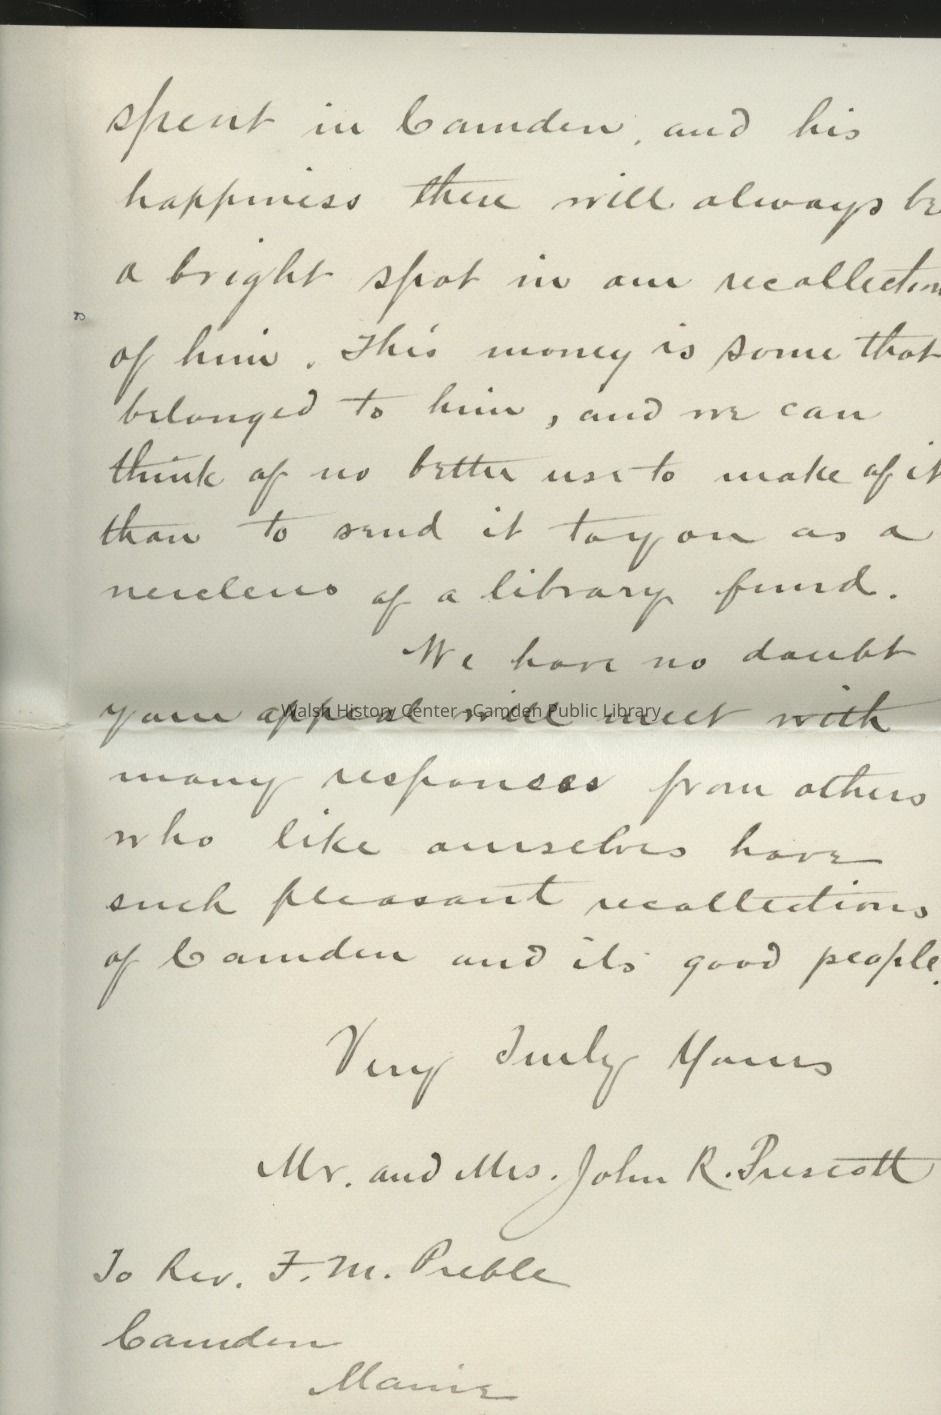 spent in Camden, and his
happiness there will always be
a bright spot in our recollection
of him. This money is some that
belonged to him, and we can
think of no better use to make of it
than to send it to you as a
neucleus of a library fund.
We have no doubt
your appeal will meet with
Walsh History Center - Camden Public Library
many responses from others
who like ourselves have
such pleasant recollections
of Camden and its good people.
Very Truly Yours
Mr. and Mrs. John R. Prescott
To Rev. F. M. Preble
Camden
Maine